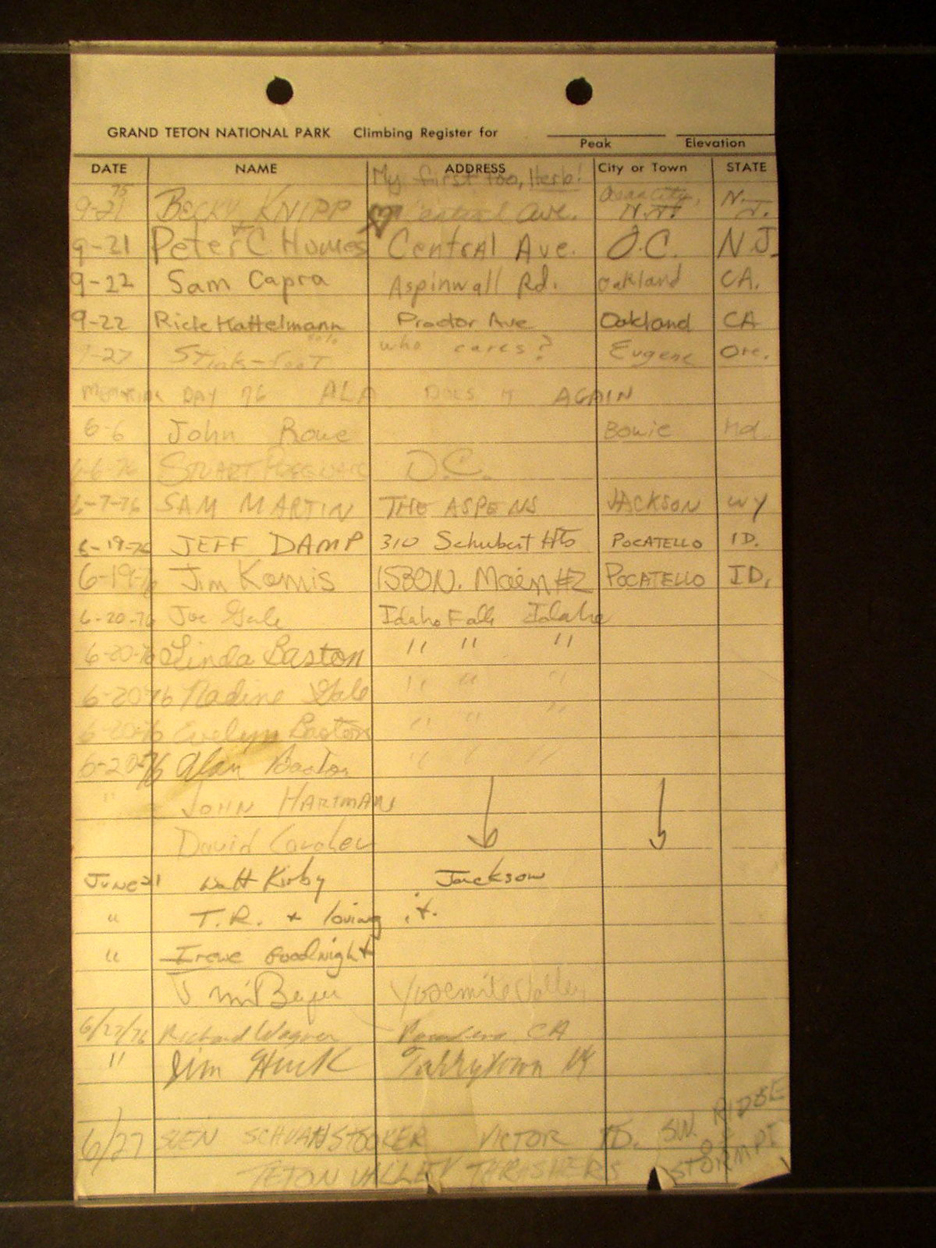 GRAND TETON NATIONAL PARK Climbing Register for
Peak Elevation
DATE NAME ADDRESS City or Town STATE
My first too, Herb!
75
9-21 BECKY KNIPP Central Ave. Ocean City, N.J.
9-21 Peter C Humes Central Ave. O.C. N.J.
9-22 Sam Capra Aspinwall Rd. Oakland CA.
9-22 Rick Kattelmann Proctor Ave Oakland CA
-27 Stink-foot who cares? Eugene Ore.
MEMORIAL DAY 76 ALA DOES IT AGAIN
6-6 John Rowe Bowie Md.
6-6-76 STUART D.C.
6-7-76 SAM MARTIN THE ASPENS JACKSON WY
6-19-76 JEFF DAMP 310 Schubert Hts POCATELLO ID.
6-19-76 Jim Kamis 1530 N. Main #2 POCATELLO ID.
6-20-76 Joe Gale Idaho Falls Idaho
6-20-76 Linda Baston " " "
6-20-76 Nadine Gale " " "
6-20-76 Evelyn Baston " " "
6-20-76 Alan Baston " " "
" JOHN HARTMAN
David
June 21 Walt Kirby Jackson
" T.R. + loving it.
" Irene Goodnight
Yosemite Valley
6/27/76 Richard Wagner CA
" Jim Huck Tarrytown NY
6/27 SVEN SCHVANSTOOKER VICTOR ID. S.W. RIDGE
TETON VALLEY THRASHERS STORM PT